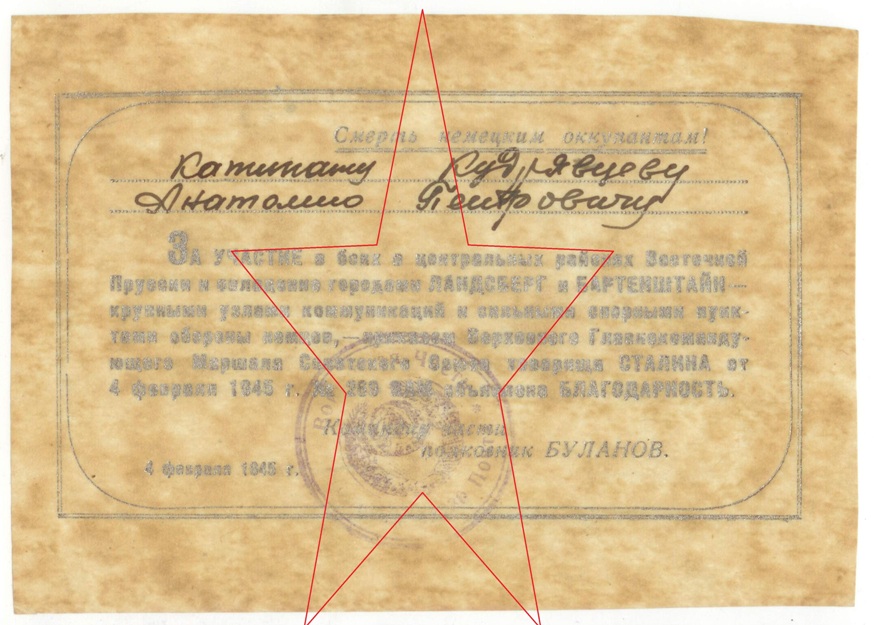 Смерть немецким оккупантам!
Капитану Кудрявцеву
Анатолию Петровичу
ЗА УЧАСТИЕ в боях в центральных районах Восточной
Пруссии и овладение городами ЛАНДСБЕРГ и БАРТЕНШТАЙН —
крупными узлами коммуникаций и сильными опорными пунк-
тами обороны немцев, — приказом Верховного Главнокоманду-
ющего Маршала Советского Союза товарища СТАЛИНА от
4 февраля 1945 г. № объявлена БЛАГОДАРНОСТЬ.
Командир части
полковник БУЛАНОВ.
4 февраля 1945 г.